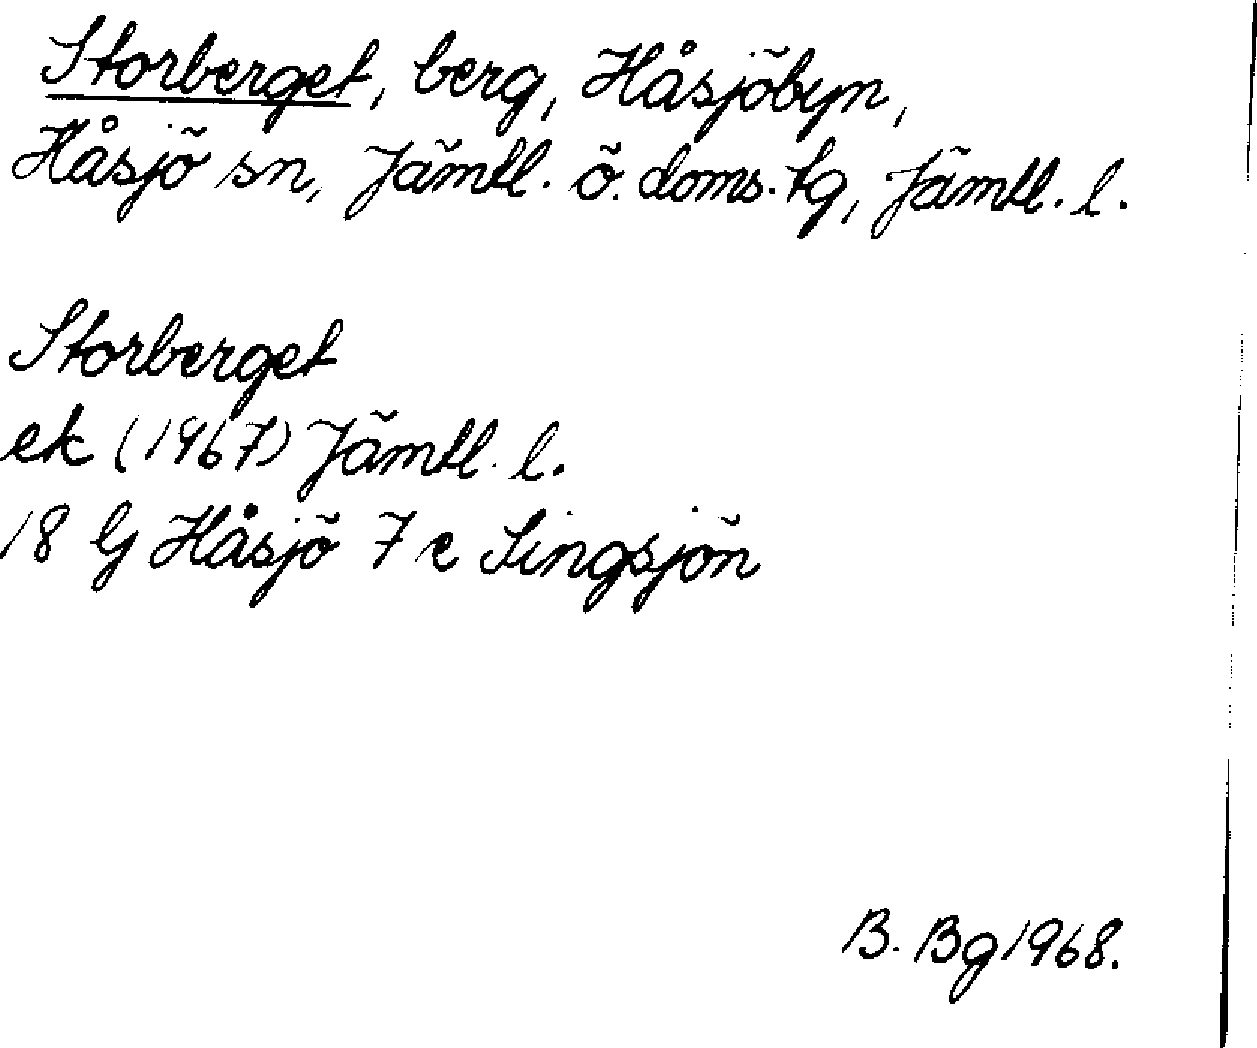 Storberget, berg, Håsjöbyn,
Håsjö sn, Jämtl. ö. doms. tg, Jämtl. l.
Storberget
ek (1967) Jämtl. l.
18 G Håsjö 7 e Singsjön
B. Bg 1968.